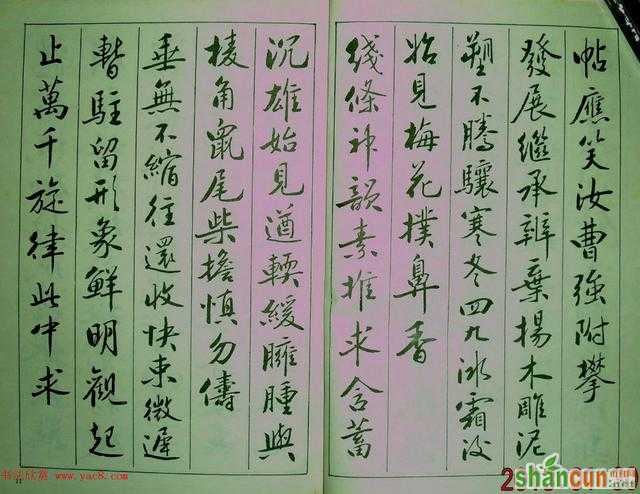 帖應笑汝曹強附攀
發展繼承辨棄揚木雕泥
塑不騰驤寒冬四九冰霜後
始見梅花撲鼻香
綫條神韻素推求含蓄
沉雄始見遒輭緩臃腫與
棱角鼠尾柴擔慎勿儔
垂無不縮往還收快束微遲
暫駐留形象鮮明觀起
止萬千旋律此中求
11
书法欣赏 www.yac8.com
2shancun